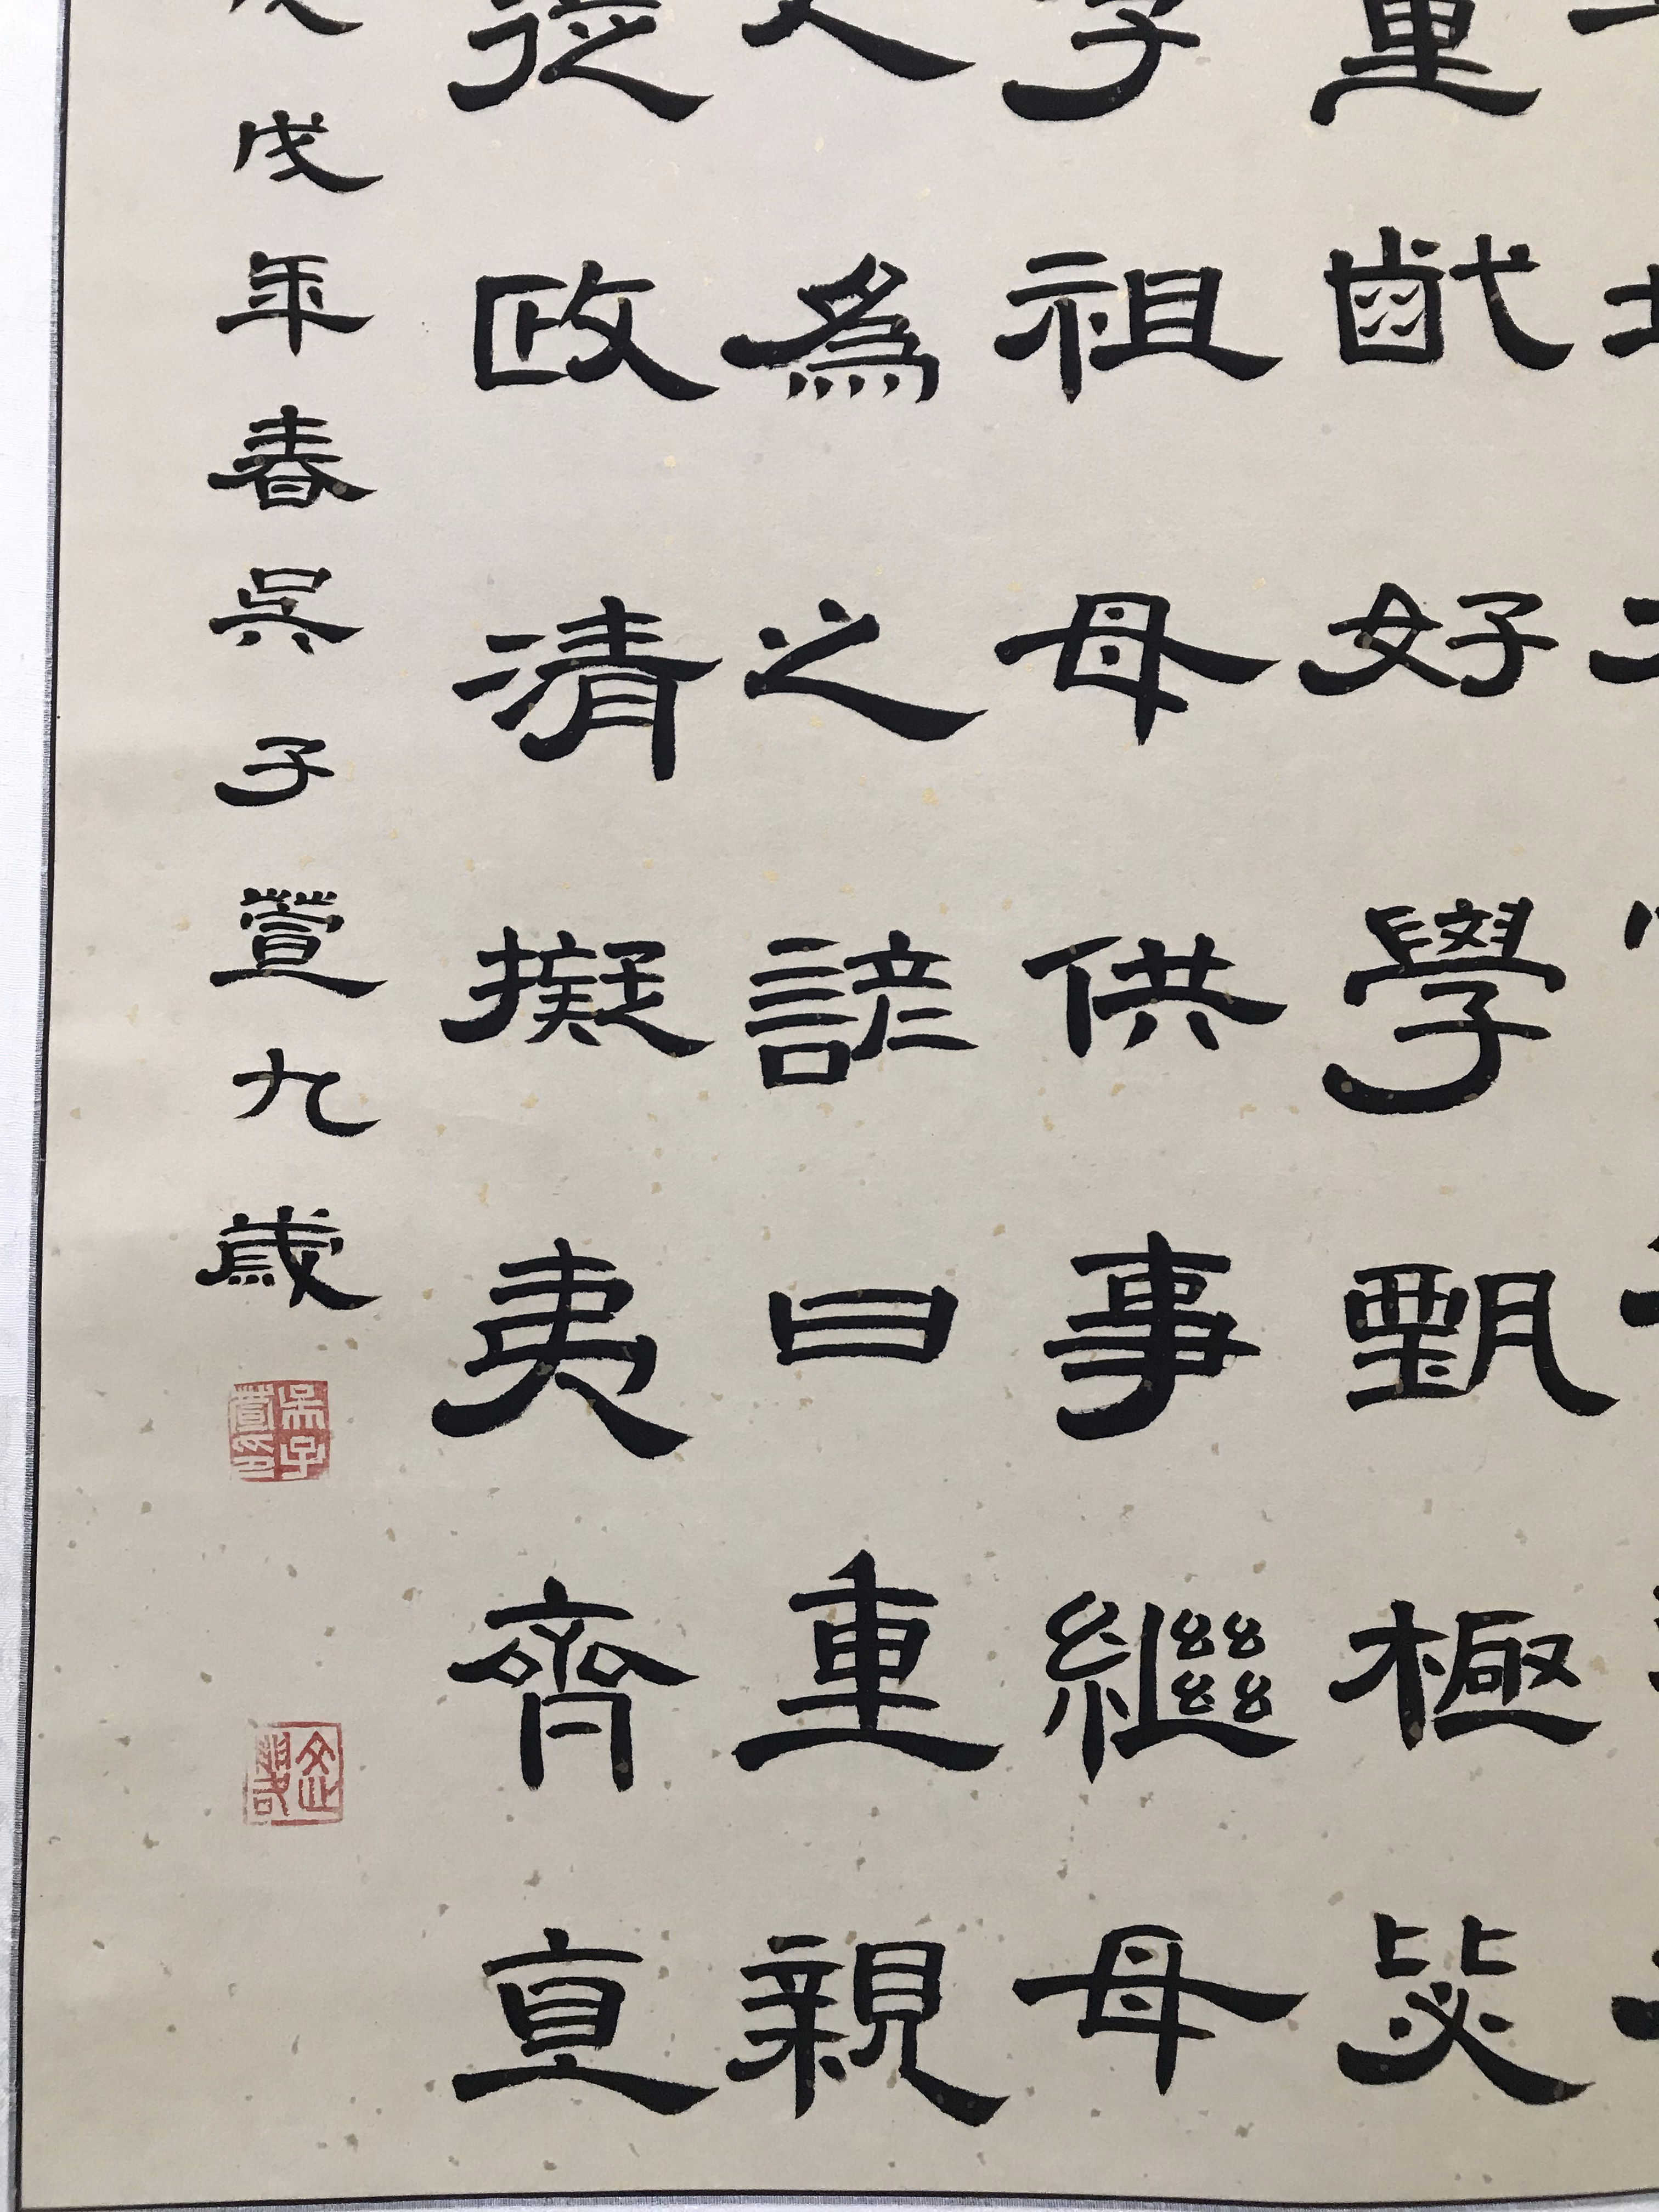 童齔好學甄極毖
季祖母供事繼母
人為之諺曰重親
從政清擬夷齊直
戌年春吳子萱九歲
吳子萱印